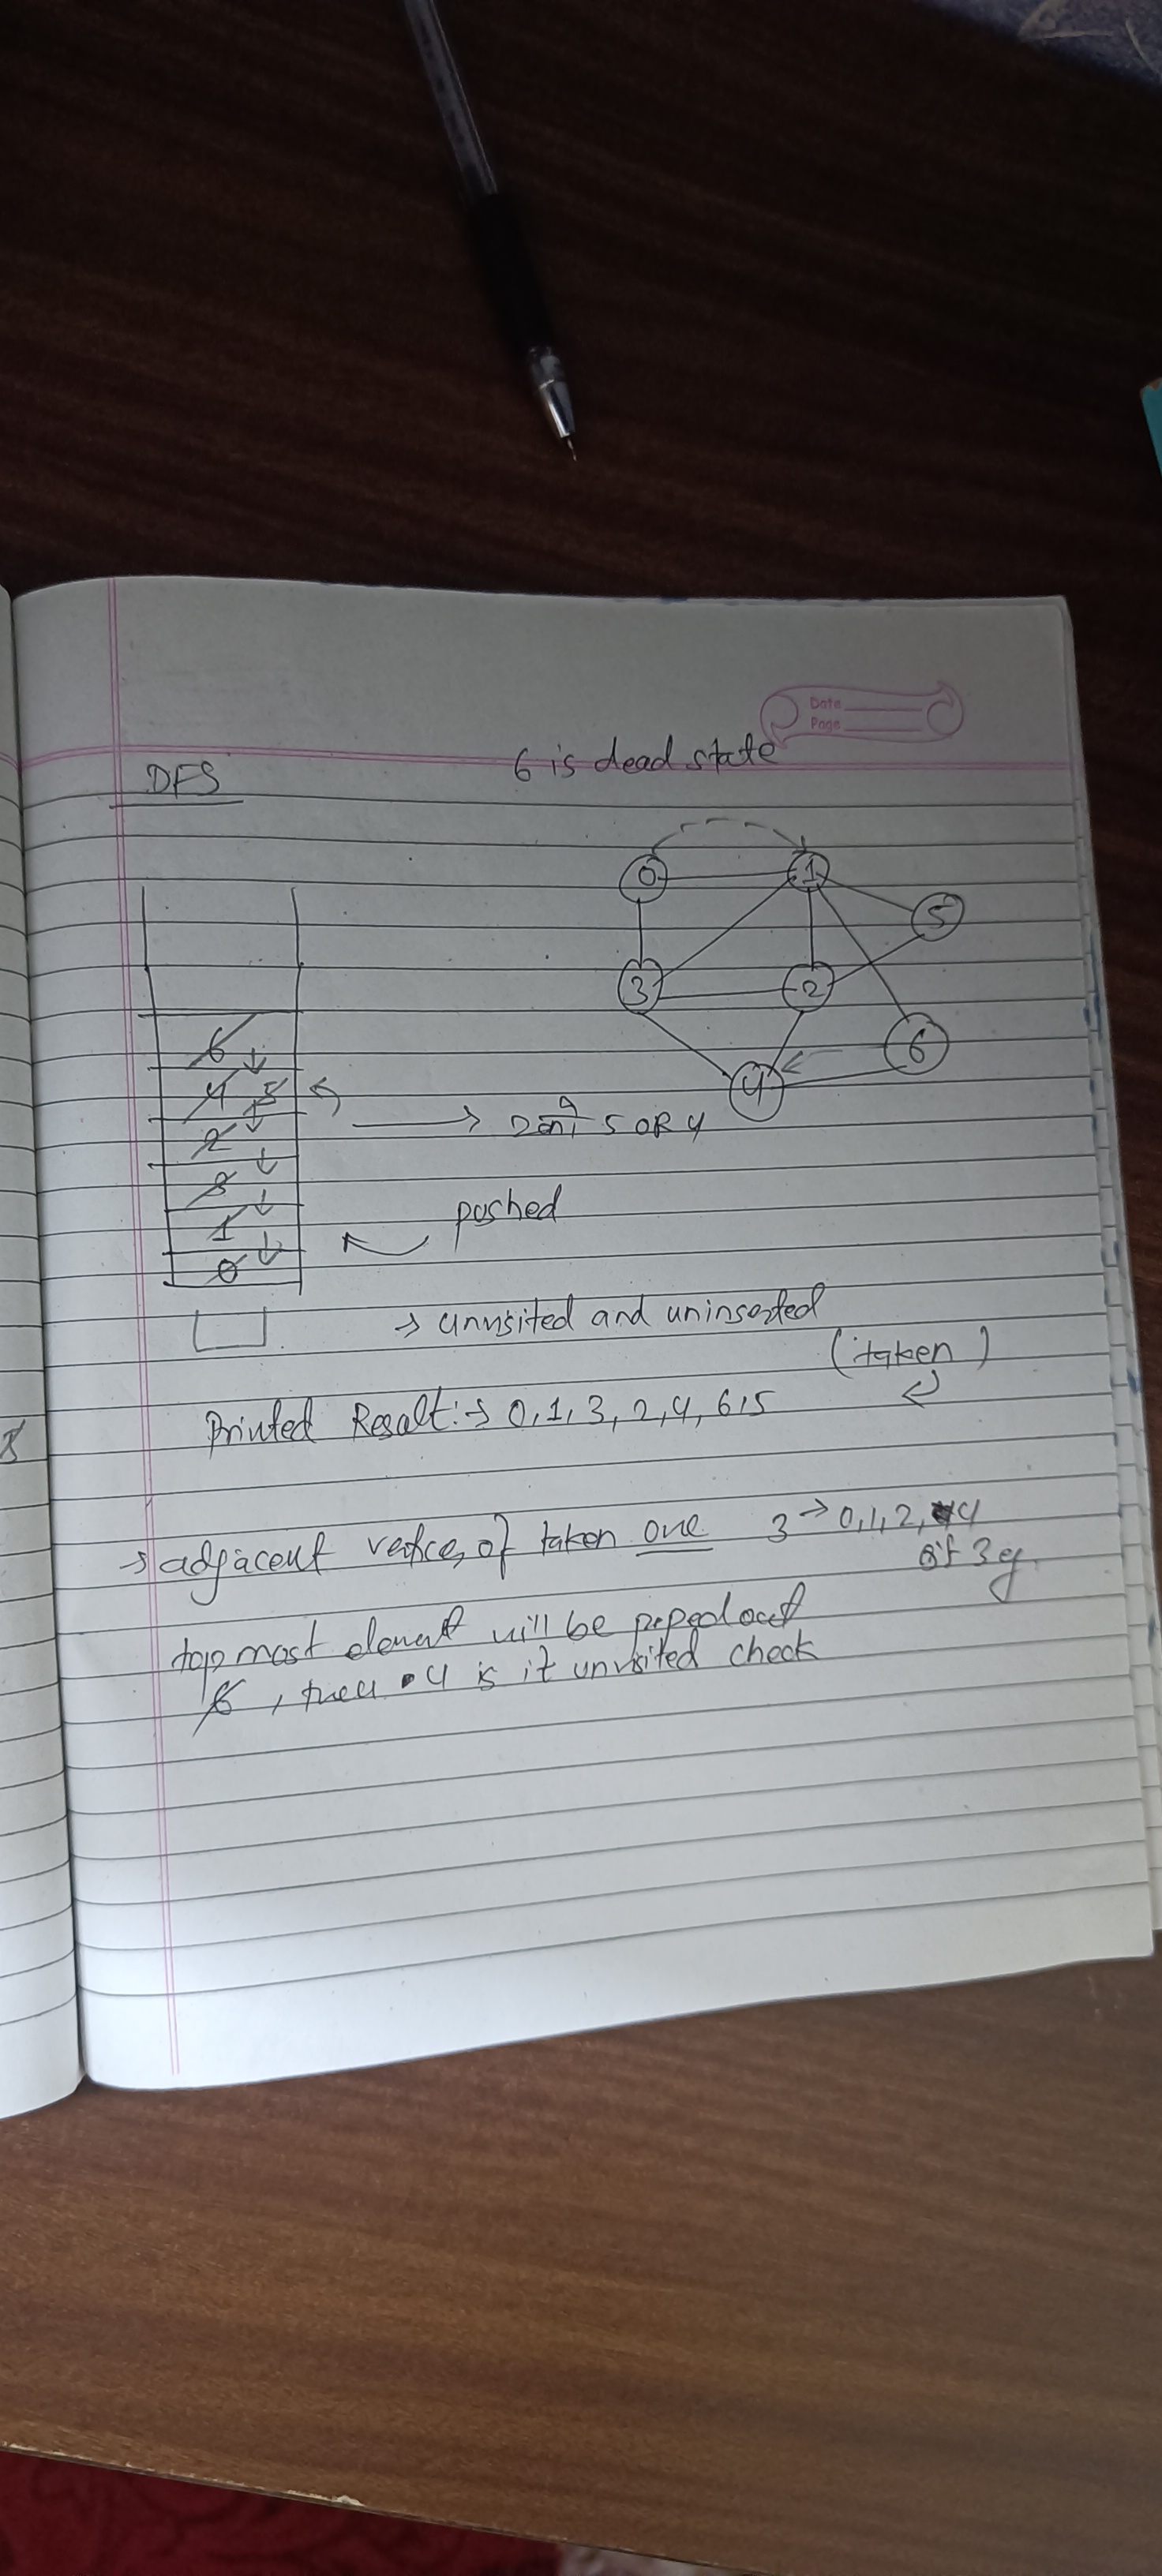 Date
Page
6 is dead state
DFS
0 1
5
3 2
6
4
6
4 5
2
3
1
0
5 OR 4
pushed
→ unvisited and uninserted
(taken)
Printed Result:→ 0, 1, 3, 2, 4, 6, 5
→ adjacent of taken one 3 → 0, 1, 2, 4
top most element will be out
6, 4 is it unvisited check